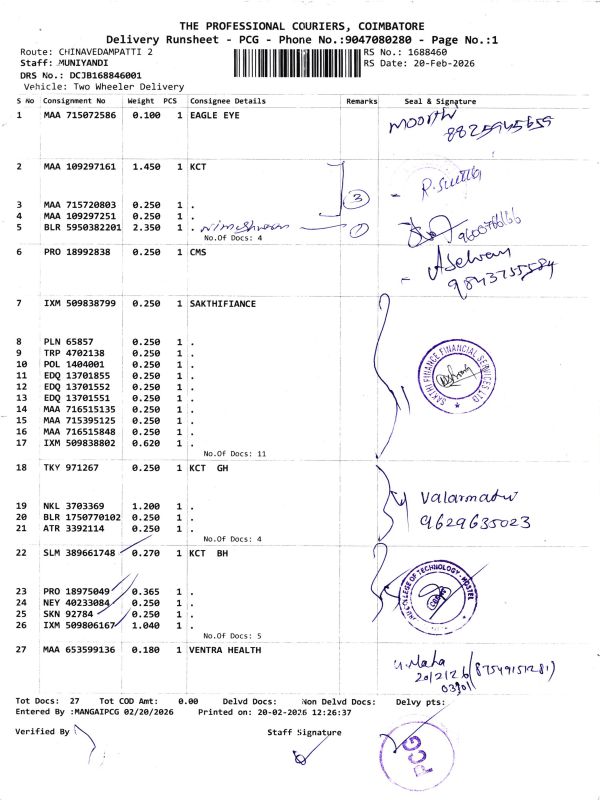 THE PROFESSIONAL COURIERS, COIMBATORE
Delivery Runsheet - PCG - Phone No.:9047080280 - Page No.:1
Route: CHINAVEDAMPATTI 2 RS No.: 1688460
Staff: MUNIYANDI RS Date: 20-Feb-2026
DRS No.: DCJB168846001
Vehicle: Two Wheeler Delivery
S No Consignment No Weight PCS Consignee Details Remarks Seal & Signature
1 MAA 715072586 0.100 1 EAGLE EYE
8825945659
2 MAA 109297161 1.450 1 KCT
3 MAA 715720803 0.250 1 . 3
4 MAA 109297251 0.250 1 .
5 BLR 5950382201 2.350 1 . 1
No.Of Docs: 4
6 PRO 18992838 0.250 1 CMS
Aselvan
9843755584
7 IXM 509838799 0.250 1 SAKTHIFIANCE
8 PLN 65857 0.250 1 .
9 TRP 4702138 0.250 1 .
10 POL 1404001 0.250 1 .
11 EDQ 13701855 0.250 1 .
12 EDQ 13701552 0.250 1 .
13 EDQ 13701551 0.250 1 .
14 MAA 716515135 0.250 1 .
15 MAA 715395125 0.250 1 .
16 MAA 716515848 0.250 1 .
17 IXM 509838802 0.620 1 .
SAKTHI FINANCE FINANCIAL SERVICES LTD
No.Of Docs: 11
18 TKY 971267 0.250 1 KCT GH
Valarmathi
9629635023
19 NKL 3703369 1.200 1 .
20 BLR 1750770102 0.250 1 .
21 ATR 3392114 0.250 1 .
No.Of Docs: 4
22 SLM 389661748 0.270 1 KCT BH
23 PRO 18975049 0.365 1 .
24 NEY 40233084 0.250 1 .
25 SKN 92784 0.250 1 .
26 IXM 509806167 1.040 1 .
COLLEGE OF TECHNOLOGY - HOSTEL
No.Of Docs: 5
27 MAA 653599136 0.180 1 VENTRA HEALTH
U. Maha
20/2/26 (8754915281)
Tot Docs: 27 Tot COD Amt: 0.00 Delvd Docs: Non Delvd Docs: Delvy pts:
Entered By :MANGAIPCG 02/20/2026 Printed on: 20-02-2026 12:26:37
Verified By Staff Signature
PCG